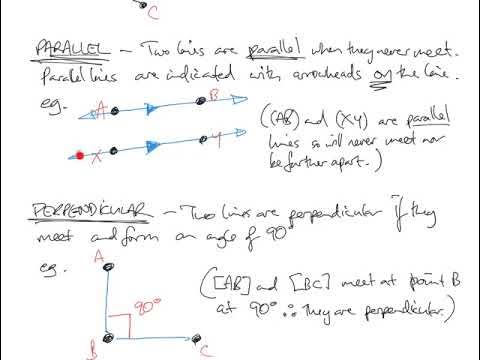 C
PARALLEL - Two lines are parallel when they never meet.
Parallel lines are indicated with arrowheads on the line.
eg.
A B
X Y
((AB) and (XY) are parallel
lines so will never meet nor
be further apart.)
PERPENDICULAR - Two lines are perpendicular if they
meet and form an angle of 90°
eg.
A
90°
B C
([AB] and [BC] meet at point B
at 90° ∴ They are perpendicular.)